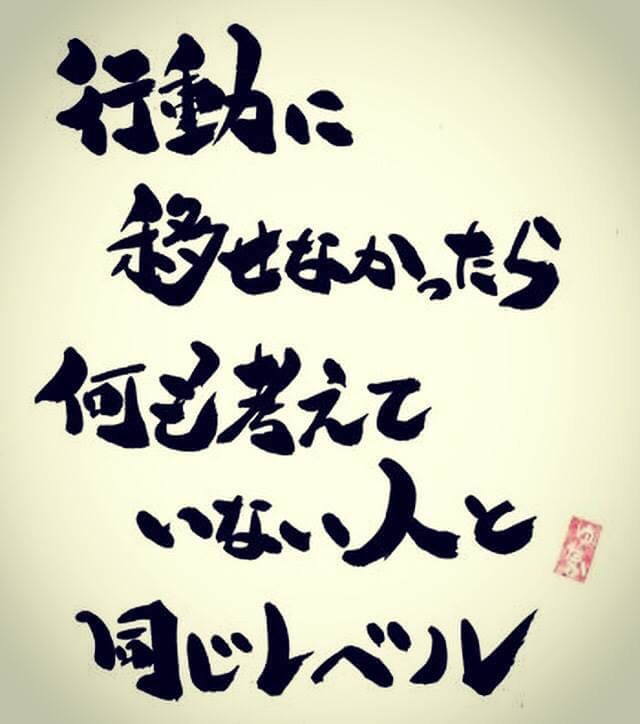 行動に
移せなかったら
何も考えて
いない人と
同じレベル